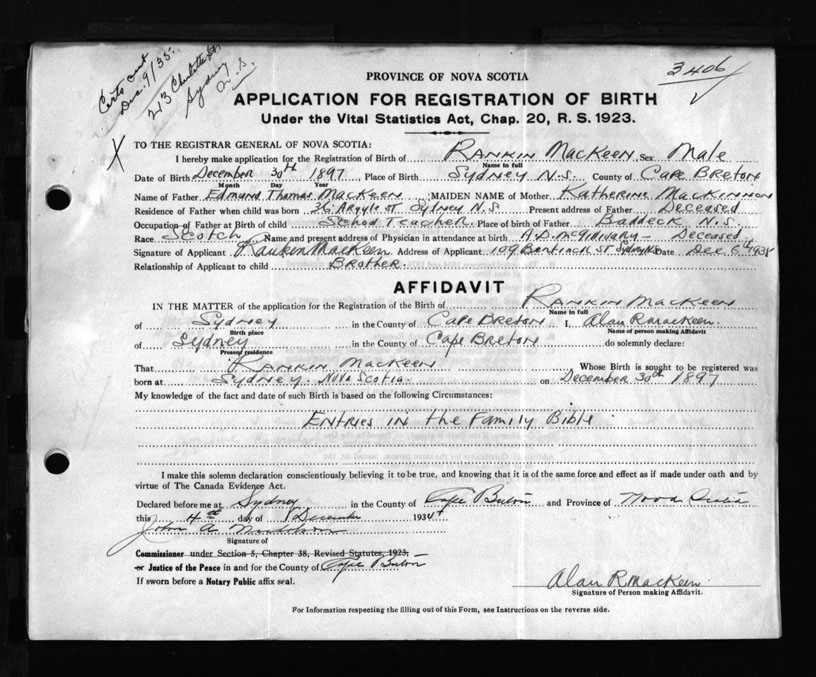 Certs out
Dec. 9/35.
213 Charlotte St
Sydney
N.S.
3406
PROVINCE OF NOVA SCOTIA
APPLICATION FOR REGISTRATION OF BIRTH
Under the Vital Statistics Act, Chap. 20, R. S. 1923.
X
TO THE REGISTRAR GENERAL OF NOVA SCOTIA:
I hereby make application for the Registration of Birth of Rankin MacKeen Sex Male
Name in full
Date of Birth December 30th 1897 Place of Birth Sydney N.S. County of Cape Breton
Month Day Year
Name of Father Edmund Thomas MacKeen MAIDEN NAME of Mother Katherine MacKinnon
Residence of Father when child was born 36 Argyle St Sydney N.S. Present address of Father Deceased
Occupation of Father at Birth of child School Teacher Place of birth of Father Baddeck N.S.
Race Scotch Name and present address of Physician in attendance at birth A.D. McGillivary - Deceased
Signature of Applicant Rankin MacKeen Address of Applicant 109 Bentinck St Sydney NS Date Dec 6th 1934
Relationship of Applicant to child Brother.
AFFIDAVIT
IN THE MATTER of the application for the Registration of the Birth of Rankin MacKeen
Name in full
of Sydney in the County of Cape Breton I, Alan R MacKeen.
Birth place Name of person making Affidavit
of Sydney in the County of Cape Breton do solemnly declare:
Present residence
That Rankin MacKeen Whose Birth is sought to be registered was
born at Sydney. Nova Scotia. on December 30th 1897
My knowledge of the fact and date of such Birth is based on the following Circumstances:
Entries in the Family Bible
I make this solemn declaration conscientiously believing it to be true, and knowing that it is of the same force and effect as if made under oath and by
virtue of The Canada Evidence Act.
Declared before me at Sydney in the County of Cape Breton and Province of Nova Scotia
this 4th day of December 1934
John A
Signature of
Commissioner under Section 5, Chapter 38, Revised Statutes, 1923,
or Justice of the Peace in and for the County of Cape Breton
If sworn before a Notary Public affix seal.
Alan R. MacKeen.
Signature of Person making Affidavit.
For Information respecting the filling out of this Form, see Instructions on the reverse side.